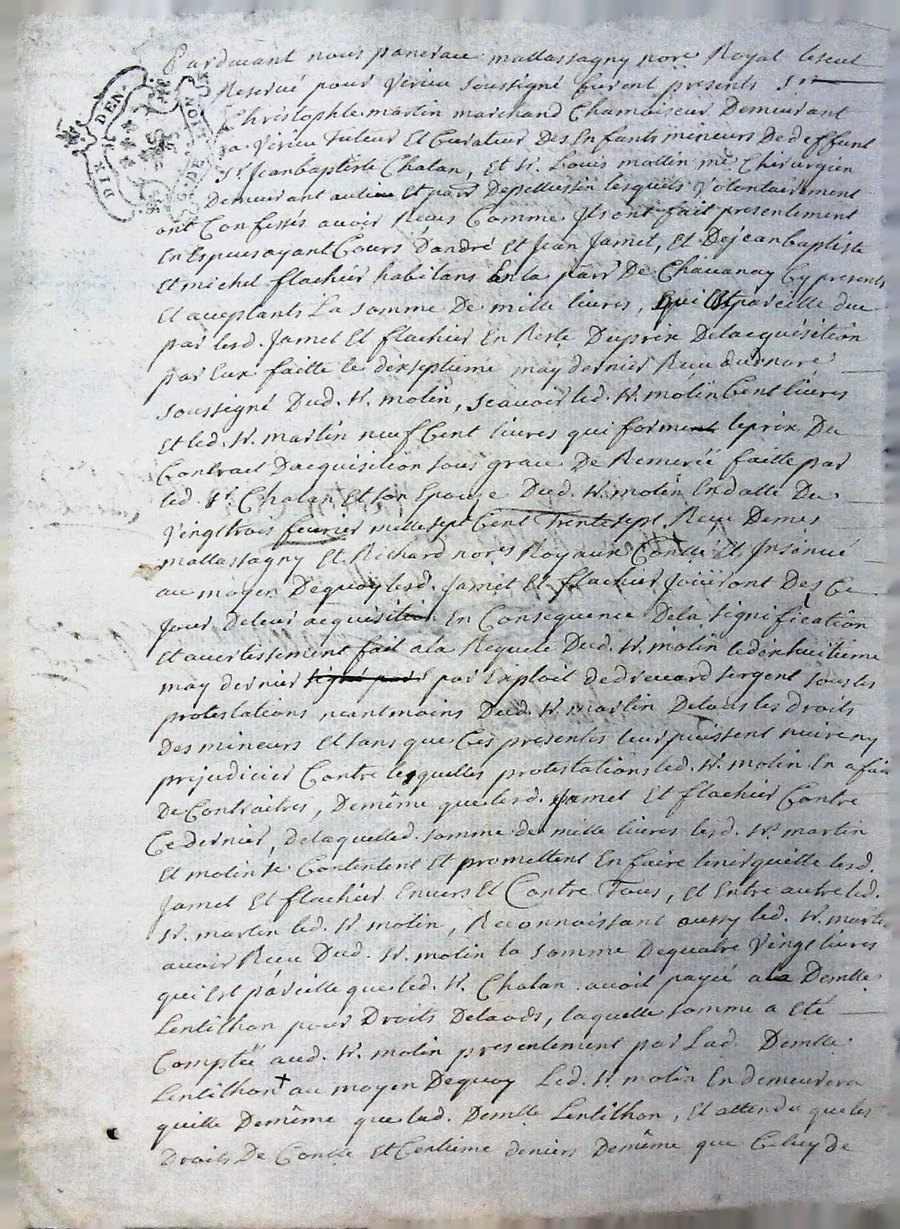 Pardevant nous pancrace mallassagny nore Royal le seul
Reservé pour Verieu soussigné furent presents Sr
Christophle martin marchand Chamoiseur Demeurant
a Verieu Tuteur Et Curateur Des Enfants mineurs De deffunt
Sr. Jeanbaptiste Chalan, Et Sr. Louis mollin me Chirurgien
Demeurant au lieu Et parr De pellussin lesquels Volontairement
ont Confessés avoir Reçus Comme Ils ont fait presentement
En Espuces ayant Cours D'andré Et Jean Jamet, Et De jeanbaptiste
Et michel flachier habitans En la parr De Chavanay Cy presents
Et acceptants La somme De mille livres, qui Est pareille due
par lesd. Jamet Et flachier En Reste Du prix De lacquisition
par Eux faitte le dixseptieme may dernier Reçu dud nore
soussigné Dud. Sr. molin, scavoir led. Sr. molin Cent livres
Et led. Sr. martin neuf Cent livres qui forment le prix Du
Contract Dacquisition sous grace De Remeré faitte par
led. Sr. Chalan Et son Epouze Dud. Sr. molin En datte Du
Vingttrois fevrier mille sept Cent Trente sept Reçu De mes
mallassagny Et Richard nores Royaux Conllé Et Insinué
au moyen Dequoy lesd. Jamet Et flachier Joüiront Des Ce
Jour De leur acquisition En Consequence De la signification
Et avertissement fait a la Requete Dud. Sr. molin le dixhuitieme
may dernier par Exploit de drevard sergent sous les
protestations neantmoins Dud. Sr. martin De tous les droits
Des mineurs Et sans que Ces presentes leur puissent nuire ny
prejudicier Contre lesquelles protestations led. Sr. molin En a fait
De Contraires, De même que lesd. Jamet Et flachier Contre
Ce dernier, De laquelle d. somme de mille livres lesd. Srs martin
Et molin se Contentent Et promettent En faire tenir quitte lesd.
Jamet Et flachier Envers Et Contre Tous, Et Entre autre led.
Sr. martin led. Sr. molin, Reconnaissant aussy led. Sr. martin
avoir Reçu Dud. Sr. molin la somme De quatre Vingt livres
qui Est pareille que led. Sr. Chalan avoit payée a la Demlle
Lentilhon pour Droits De laods, laquelle somme a Eté
Comptée aud. Sr. molin presentement par Lad. Demlle
Lentilhon + au moyen Dequoy Led. Sr. molin En demeurera
quitte De même que lad. Demlle Lentilhon, Et attendu que les
Droits De Conlle Et Centieme deniers De même que Celuy de